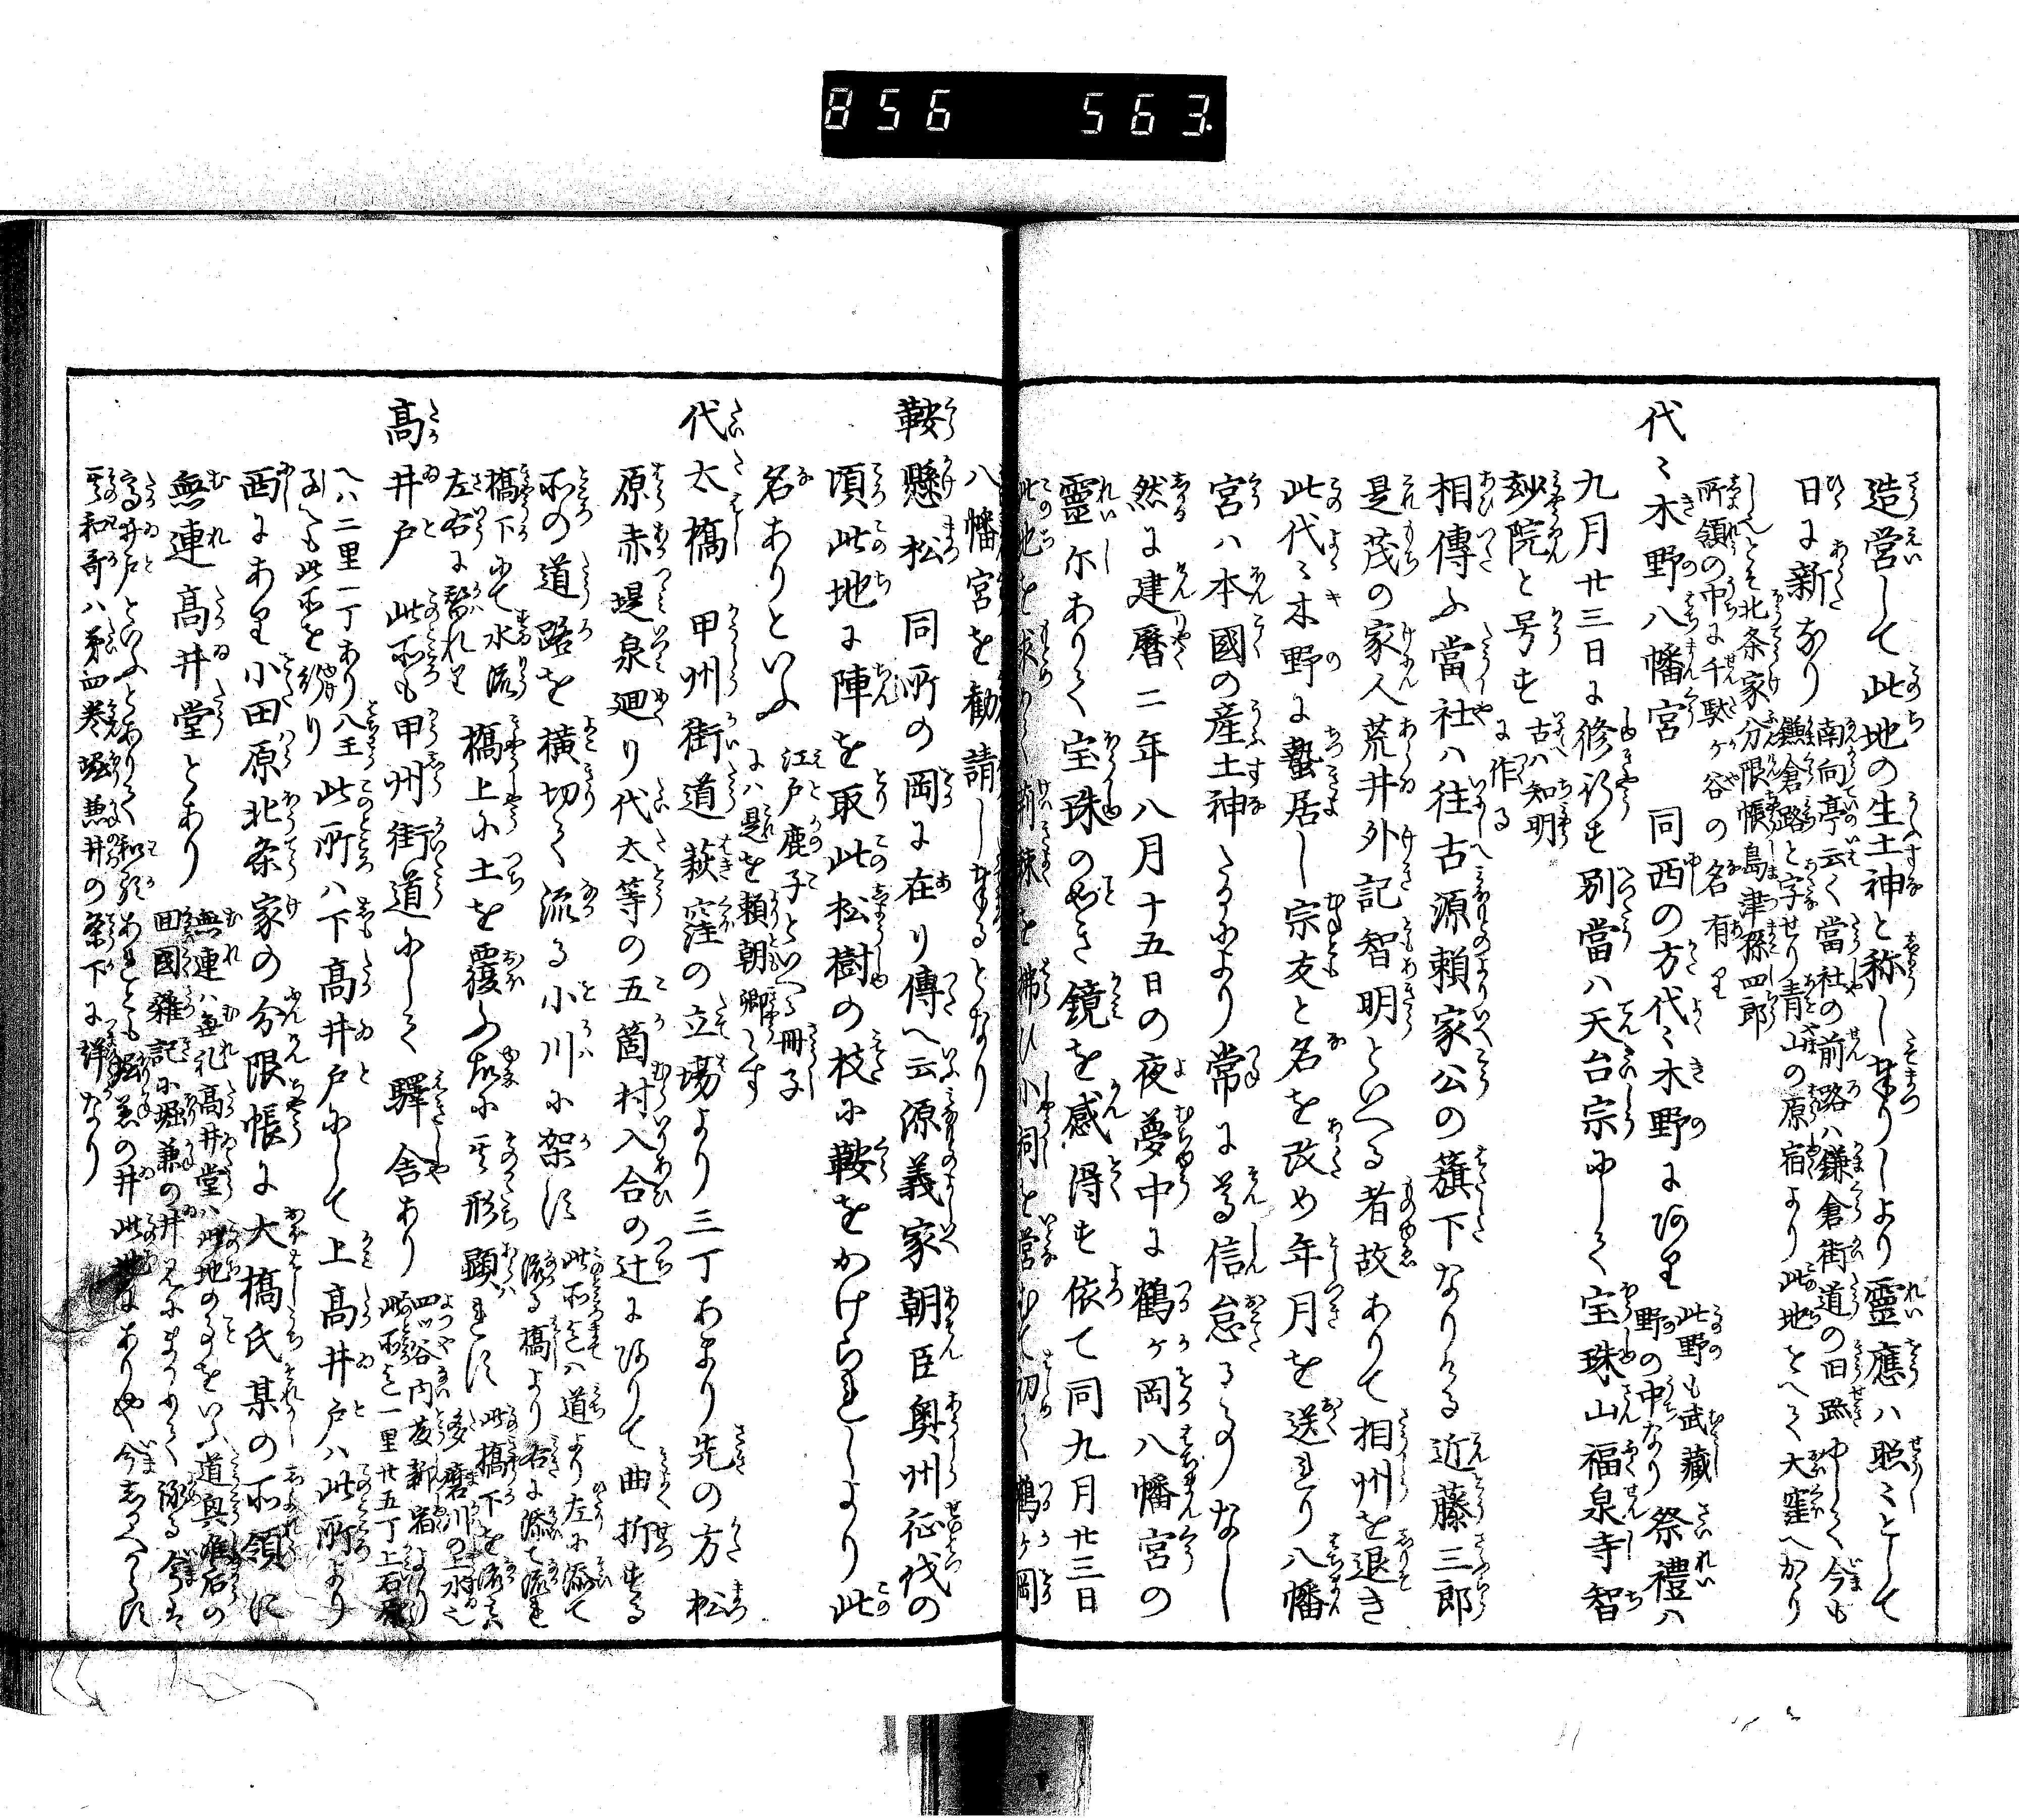 856 563.
造営して此地の生土神と称し奉りしより霊應ハ照〻として
日に新なり 南向亭云く當社の前路ハ鎌倉街道の旧跡にして今も
鎌倉路と字せり青山の原宿より此地をへて大窪へかゝり
しとそ北条家分限帳島津孫四郎
所領の中に千駄ヶ谷の名有り
代〻木野八幡宮 同西の方代〻木野にあり 此野も武蔵
野の中なり 祭禮ハ
九月廿三日に修行す別當ハ天台宗にして宝珠山福泉寺智
玅院と号す 古ハ知明
に作る
相傳ふ當社ハ往古源頼家公の簱下なりける近藤三郎
是茂の家人荒井外記智明といへる者故ありて相州を退き
此代〻木野に蟄居し宗友と名を改め年月を送れり八幡
宮ハ本國の産土神たるにより常に尊信怠る事なし
然に建暦二年八月十五日の夜夢中に鶴ヶ岡八幡宮の
靈尓ありて宝珠の如き鏡を感得す依て同九月廿三日
此地を求めて荊棘を拂ひ小祠を営むて初て鶴ヶ岡
八幡宮を勧請し奉るとなり
鞍懸松 同所の岡に在り傳へ云源義家朝臣奥州征伐の
頃此地に陣を取此松樹の枝に鞍をかけられしより此
名ありといふ 江戸鹿子といへる冊子
にハ是を頼朝卿とす
代太橋 甲州街道萩窪の立場より三丁あまり先の方松
原赤堤泉廻り代太等の五箇村入合の辻にありて曲折する
所の道路を横切て流る小川に架す 此所迄ハ道より左に添て
流る橋より右に添て流れ
橋下にて水流
左右に替れり 橋上に土を覆ふ故に其形顕れす 此橋下を流るゝハ
多磨川の上水也
高井戸 此所も甲州街道にして驛舎あり 四ツ谷内藤新宿より
此所迄一里廿五丁上石原
へハ二里一丁あり八王
子へも此所を行り 此所ハ下高井戸にして上高井戸ハ此所より
西にあり小田原北条家の分限帳に大橋氏某の所領に
無連高井堂とあり 無連ハ無礼高井堂ハ此地の事をいふ道興准后の
回國雑記に堀兼の井見にまかりて詠る今は
高井戸といふとありて和歌あれとも堀兼の井此地にありや今志るへからす
其和哥ハ第四巻堀兼井の条下に詳なり